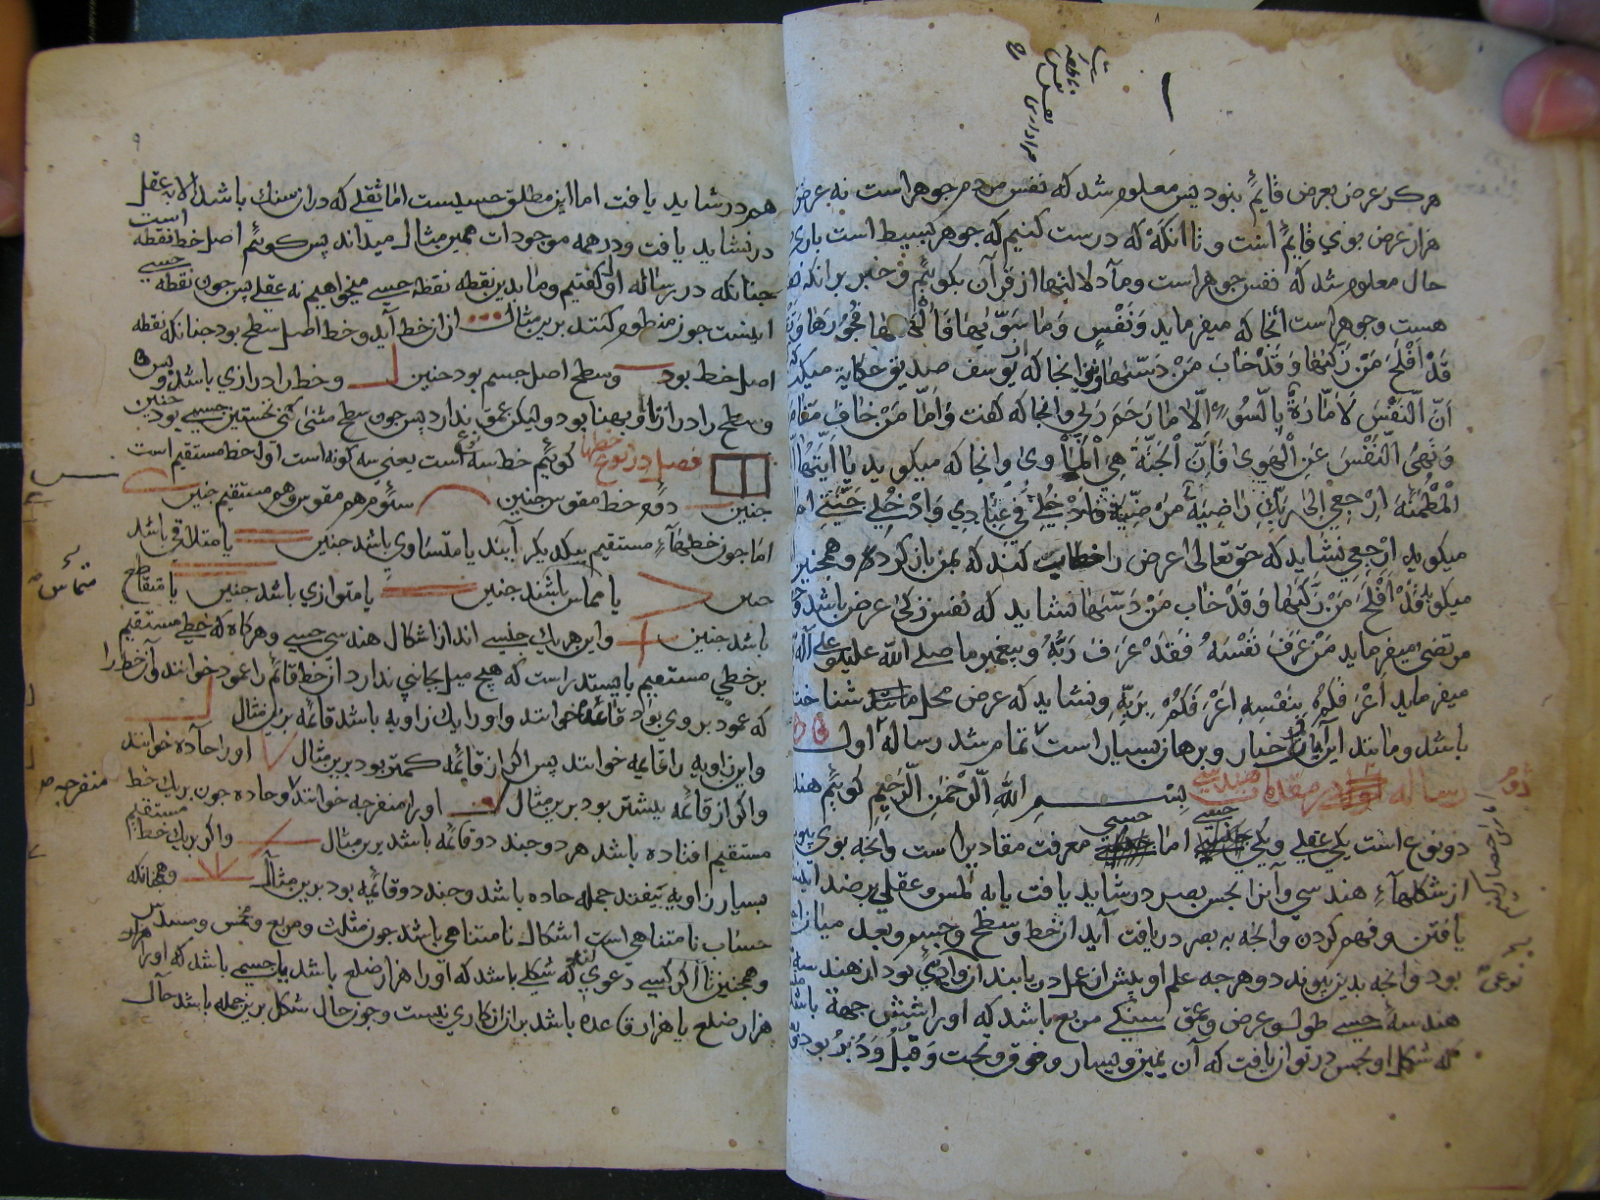 هر کز عرض بعرض قایم نبود پس معلوم شد که نفس مردم جوهر است نه عرض
هزار عرض بوی قایم است و تا آنکه که درست کنیم که جوهر بسیط است باری
حال معلوم شد که نفس جوهر است و ما دلالتها از قرآن بکوییم و خبر بر آنکه
هست و جوهر است آنجا که میفرماید وَنَفْسٍ وَمَا سَوَّیٰهَا فَأَلْهَمَهَا فُجُورَهَا
قَدْ أَفْلَحَ مَنْ زَكّٰىهَا وَقَدْ خَابَ مَنْ دَسّٰىهَا وانجا که یوسف صدیق حکایة میکند
اَنَّ النَّفْسَ لَأَمّارَةٌ بِالسُّوءِ اِلّا مَا رَحِمَ رَبّي وانجا که کفت وَاَمّا مَنْ خَافَ مَقَامَ
وَنَهَى النَّفْسَ عَنِ الْهَوى فَاِنَّ الْجَنَّةَ هِيَ الْمَأْوى وانجا که میکوید یَا اَیَّتُهَا
الْمُطْمَئِنَّة اِرْجِعي اِلى رَبِّكِ رَاضِيَةً مَرْضِيَّةً فَادْخُلِي فِي عِبَادِي وَادْخُلِي جَنَّتِي
میکوید ارجعی نشاید که حق تعالی اعراض را خطاب کند که بمن باز کرد و همچنین
میکوید قَدْ أَفْلَحَ مَنْ زَكّٰىهَا وَقَدْ خَابَ مَنْ دَسّٰىهَا نشاید که نفس زکی عرض باشد
مرتضی میفرماید مَنْ عَرَفَ نَفْسَهُ فَقَدْ عَرَفَ رَبَّهُ و پیغمبر ما صلی الله علیه و علی آله
میفرماید اَعْرَفُكُمْ بِنَفْسِهِ اَعْرَفُكُمْ بِرَبِّهِ ونشاید که عرض محل شناخت
باشد و مانند این آیات و اخبار و برهان بسیار است تمام شد رساله اول
رساله دوم در مقدمات هندسی بسم الله الرحمن الرحیم کوییم
دو نوع است یکی عقلی و یکی حسی اما حسی معرفت مقادیر است وانچه بوی
از شکلهاء هندسی و آنرا بحس بصر در شاید یافت یا به لمس و عقلی بر ضد
یافتن و فهم کردن وانچه به بصر دریافت آید از خط و سطح و جسم و بعد میان
بود وانچه بدین پیوندد و هرچه علم او پیش از عمل دریابند از وادی بود از هندسه
هندسه حسی طول و عرض و عمق سنکی مربع باشد که او را شش جهة باشد
که شکل او بحس در توان یافت که آن یمین و یسار و فوق و تحت و قُبُل و دُبُر بود
هم در شاید یافت اما این مطلق حسیست اما ثقلی که در آن سنك باشد الا به عقل
در نشاید یافت و در همه موجودات همین مثال میداند پس کوییم اصل خط نقطه است
چنانکه در رساله اول کفتیم و ما بدین نقطه نقطه حسی میخواهیم نه عقلی پس چون نقطه حسی
اینست چون منظوم کنند برین مثال از آن خط آید و خط اصل سطح بود چنانکه نقطه
اصل خط بود وسطح اصل جسم بود چنین وخط را درازی باشد و بس
وسطح را درازنا و پهنا بود ولیکن عمق ندارد پس چون سطح مثنی کنی نخستین جسمی بود چنین
فصل در نوع خطها کوییم خط سه نوع است یعنی سه کونه است اول خط مستقیم است
چنین دوم خط مقوس چنین سئوم هم مقوس و هم مستقیم چنین
اما چون خطهآء مستقیم بیکدیکر آیند یا متساوی باشد چنین یا متلاقی باشد
چنین یا مماس باشند چنین یا متوازی باشد چنین یا متقاطع
باشد چنین و این هر یك جنسی اند از اشکال هندسی حسی وهرکاه که خطی مستقیم
بر خطی مستقیم بایستد راست که هیچ میل بجانبی ندارد آن خط قایم را عمود خوانند و آن خط را
که عمود بر وی بود قاعده خوانند و او را یك زاویه باشد قائمه برین مثال
واین زاویه را قایمه خوانند پس اکر از قایمه کمتر بود برین مثال او را حاده خوانند
واکر از قائمه بیشتر بود برین مثال او را منفرجه خوانند و حاده چون بر یك خط مستقیم
مستقیم افتاده باشد هر دو چند دو قائمه باشد برین مثال واکر بر یك خط
بسیار زاویه بیفتد جمله حاده باشد و چند دو قائمه بود برین مثال وهمچنانکه
حساب نامتناهی است اشکال نامتناهی باشد چون مثلث و مربع و مخمس و مسدس
وهمچنین تا اکر کسی دعوی کند که شکلی باشد که او را هزار ضلع باشد یا جسمی باشد که او را هزار
هزار ضلع یا هزار قاعده باشد بر آن انکاری نیست و چون حال شکل برین جمله باشد حال
متماس
منفرجه